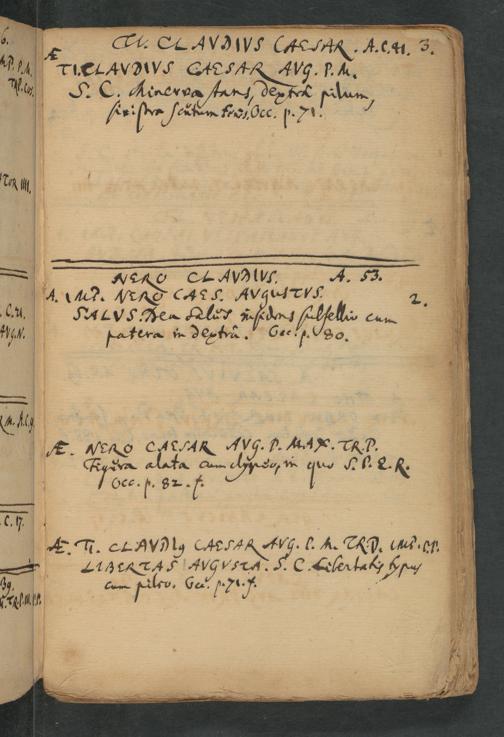 TI. CLAVDIVS CAESAR. A.C. 41. 3.
Æ
TI. CLAVDIVS CAESAR AVG. P. M.
S. C. Minerva stans, dextrâ pilum,
sinistra scutum tenens. Occ. p. 71.
NERO CLAVDIVS. A. 53.
A. IMP. NERO CAES. AVGVSTVS. 2.
SALVS. Dea Salus insidens subsellio cum
patera in dextrâ. Occ. p. 80.
Æ. NERO CAESAR AVG. P. MAX. TR. P.
Figura alata cum clypeo, in quo S. P. Q. R.
Occ. p. 82. f.
Æ. TI. CLAVDI9 CAESAR AVG. P. M. TR. P. IMP. P.P.
LIBERTAS AVGVSTA. S. C. Libertatis typus
cum pileo. Occ. p. 71. f.
6.
MP. P. M.
TOR IIII.
C. 21.
AVG. N.
M. A.C. 9.
C. 17.
39.
G. TR. P. III. P.P.